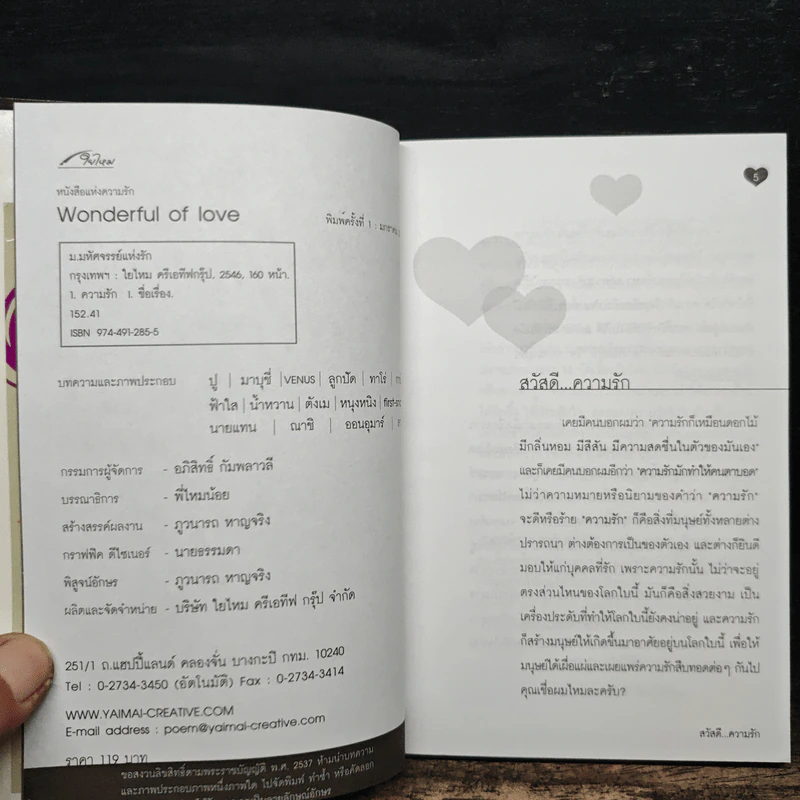 ใยไหม
หนังสือแห่งความรัก
Wonderful of love
พิมพ์ครั้งที่ 1 : มกราคม
ม.มหัศจรรย์แห่งรัก
กรุงเทพฯ : ใยไหม ครีเอทีฟกรุ๊ป, 2546, 160 หน้า.
1. ความรัก I. ชื่อเรื่อง.
152.41
ISBN 974-491-285-5
บทความและภาพประกอบ ปู | มาบุชี่ | VENUS | ลูกปัด | ทาโร่ |
ฟ้าใส | น้ำหวาน | ตังเม | หนุงหนิง |
นายแทน | ณาชิ | ออนอุมาร์ |
กรรมการผู้จัดการ - อภิสิทธิ์ กัมพลาวลี
บรรณาธิการ - พี่ไหมน้อย
สร้างสรรค์ผลงาน - ภูวนารถ หาญจริง
กราฟฟิค ดีไซเนอร์ - นายธรรมดา
พิสูจน์อักษร - ภูวนารถ หาญจริง
ผลิตและจัดจำหน่าย - บริษัท ใยไหม ครีเอทีฟ กรุ๊ป จำกัด
251/1 ถ.แฮปปี้แลนด์ คลองจั่น บางกะปิ กทม. 10240
Tel : 0-2734-3450 (อัตโนมัติ) Fax : 0-2734-3414
WWW.YAIMAI-CREATIVE.COM
E-mail address : poem@yaimai-creative.com
ราคา 119 บาท
ขอสงวนลิขสิทธิ์ตามพระราชบัญญัติ พ.ศ. 2537 ห้ามนำบทความ
และภาพประกอบภาพหนึ่งภาพใด ไปจัดพิมพ์ ทำซ้ำ หรือคัดลอก
5
สวัสดี...ความรัก
เคยมีคนบอกผมว่า "ความรักก็เหมือนดอกไม้
มีกลิ่นหอม มีสีสัน มีความสดชื่นในตัวของมันเอง"
และก็เคยมีคนบอกผมอีกว่า "ความรักมักทำให้คนตาบอด"
ไม่ว่าความหมายหรือนิยามของคำว่า "ความรัก"
จะดีหรือร้าย "ความรัก" ก็คือสิ่งที่มนุษย์ทั้งหลายต่าง
ปรารถนา ต่างต้องการเป็นของตัวเอง และต่างก็ยินดี
มอบให้แก่บุคคลที่รัก เพราะความรักนั้น ไม่ว่าจะอยู่
ตรงส่วนไหนของโลกใบนี้ มันก็คือสิ่งสวยงาม เป็น
เครื่องประดับที่ทำให้โลกใบนี้ยังคงน่าอยู่ และความรัก
ก็สร้างมนุษย์ให้เกิดขึ้นมาอาศัยอยู่บนโลกใบนี้ เพื่อให้
มนุษย์ได้เผื่อแผ่และเผยแพร่ความรักสืบทอดต่อๆ กันไป
คุณเชื่อผมไหมละครับ?
สวัสดี...ความรัก